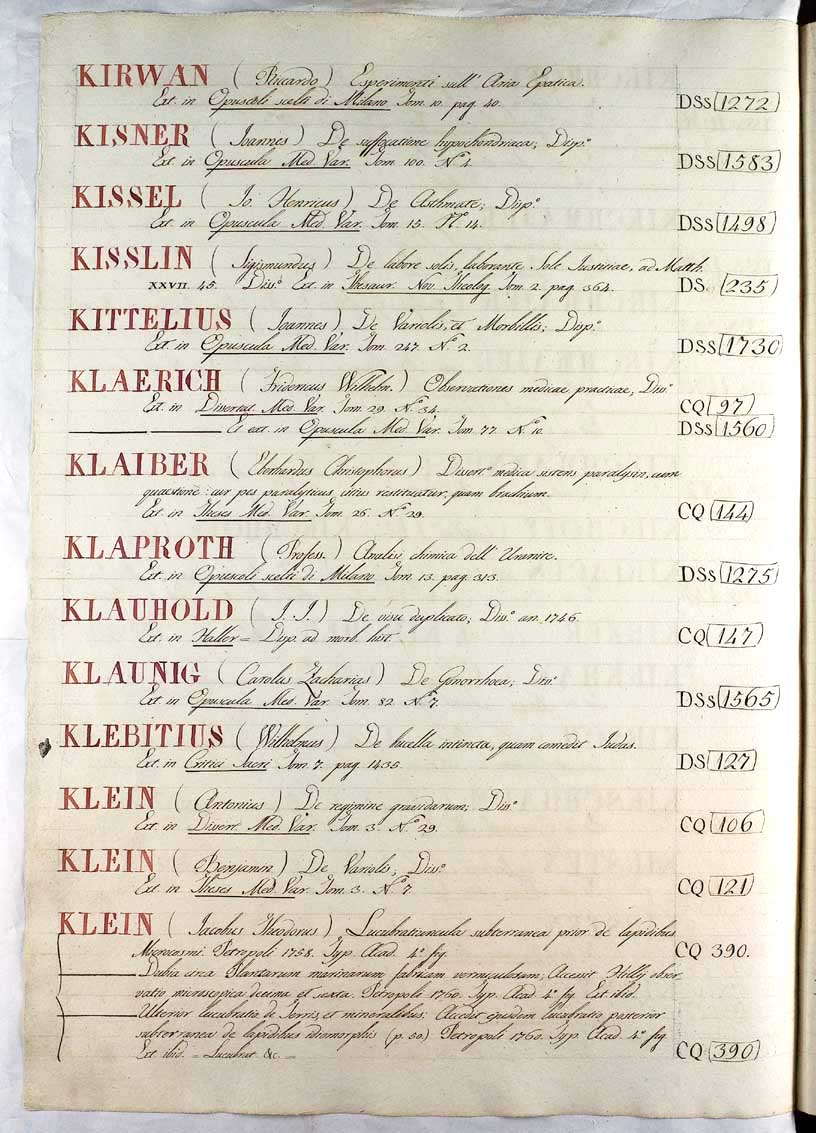 KIRWAN (Riccardo) Esperimenti sull' Aria Epatica.
Ext. in Opuscoli scelti di Milano Tom. 10. pag. 40. DSs 1272
KISNER (Joannes) De suffocatione hypochondriaca; Disp.º
Ext. in Opuscula Med. Var. Tom. 100. N.º 4. DSs 1583
KISSEL (Jo. Henricus) De Asthmate; Disp.º
Ext. in Opuscula Med. Var. Tom. 15. N.º 14. DSs 1498
KISSLIN (Sigismundus) De labore solis, laborante Sole Justitiae, ad Matth.
XXVII. 45. Diss.º Ext. in Thesaur. Nov. Theolog. Tom. 2. pag. 564. DS. 235
KITTELIUS (Joannes) De Variolis, et Morbillis; Disp.º
Ext. in Opuscula Med. Var. Tom. 247. N.º 2. DSs 1730
KLAERICH (Fridericus Wilhelm.) Observationes medicae practicae, Diss.º
Ext. in Dissertat. Med. Var. Tom. 29. N.º 34. CQ 97
Et ext. in Opuscula Med. Var. Tom. 77. N.º 10. DSs 1560
KLAIBER (Eberhardus Christophorus) Dissert.º medica sistens paralysin, cum
quaestione: cur pes paralyticus citius restituatur, quam brachium.
Ext. in Theses Med. Var. Tom. 26. N.º 29. CQ 144
KLAPROTH (Profess.) Analisi chimica dell' Uranite.
Ext. in Opuscoli scelti di Milano Tom. 13. pag. 313. DSs 1275
KLAUHOLD (J. J.) De visu duplicato; Diss.º an. 1746.
Ext. in Haller = Disp. ad morb. hist. CQ 147
KLAUNIG (Carolus Zacharias) De Gonorrhoea; Diss.º
Ext. in Opuscula Med. Var. Tom. 82. N.º 7. DSs 1565
KLEBITIUS (Wilhelmus) De bucella intincta, quam comedit Judas.
Ext. in Critici Sacri Tom. 7. pag. 1435. DS 127
KLEIN (Antonius) De regimine gravidarum; Diss.º
Ext. in Dissert. Med. Var. Tom. 3. N.º 29. CQ 106
KLEIN (Benjamin) De Variolis, Diss.º
Ext. in Theses Med. Var. Tom. 3. N.º 7 CQ 121
KLEIN (Jacobus Theodorus) Lucubratiuncula subterranea prior de lapidibus
Macrocosmi. Petropoli 1758. Typ. Acad. 4.º fig. CQ 390.
Dubia circa Plantarum marinarum fabricam vermiculosam; Accessit Hillii obser
vatio microscopica decima et sexta. Petropoli 1760. Typ. Acad. 4.º fig. Ext. ibid.
Ulterior lucubratio de Terris, et mineralibus: Accedit ejusdem lucubratio posterior
subterranea de lapidibus idiomorphis (p. 50.) Petropoli 1760. Typ. Acad. 4.º fig.
Ext. ibid. = Lucubrat. &c. = CQ 390